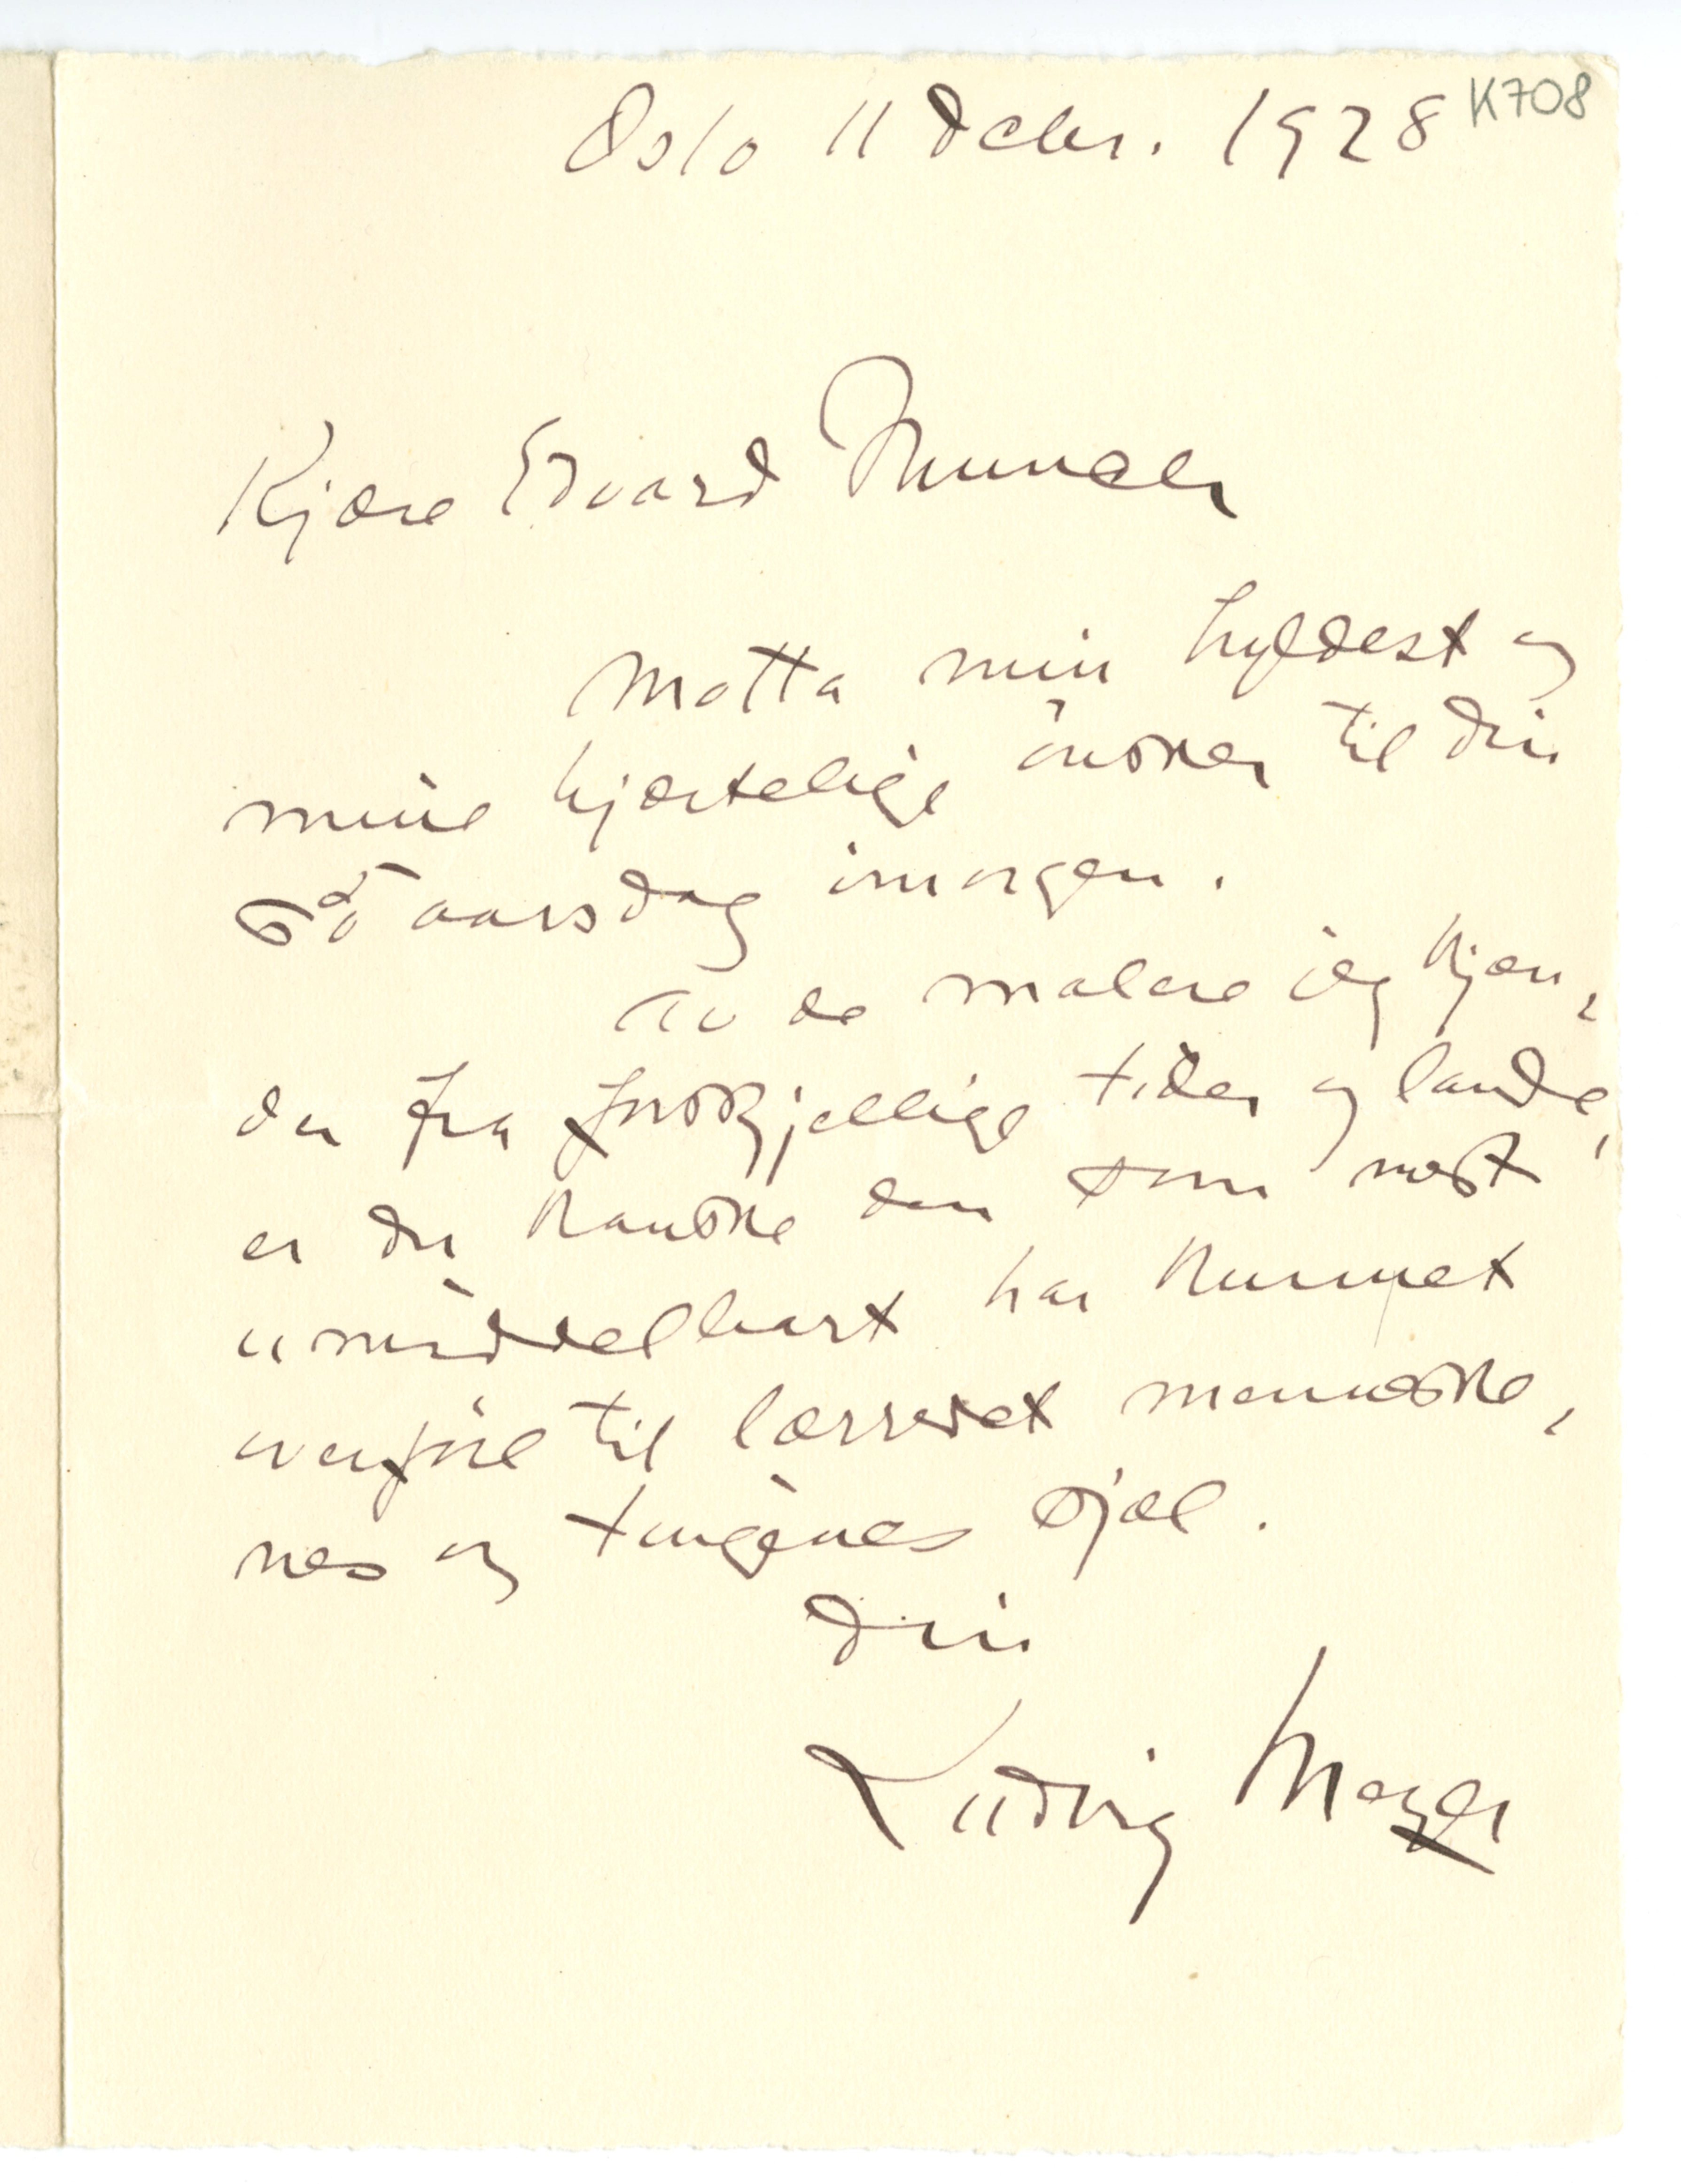 Oslo 11 decbr. 1928 K708
Kjære Edvard Munch
Motta min hyldest og
mine hjærtelige önsker til din
65 aarsdag imorgen.
Av de malere jeg kjæn-
der fra forskjellige tider og lande,
er du kanske den som mest
umiddelbart har kunnet
overføre til lærredet menneske-
nes og tingenes sjæl.
Din
Ludvig Meyer